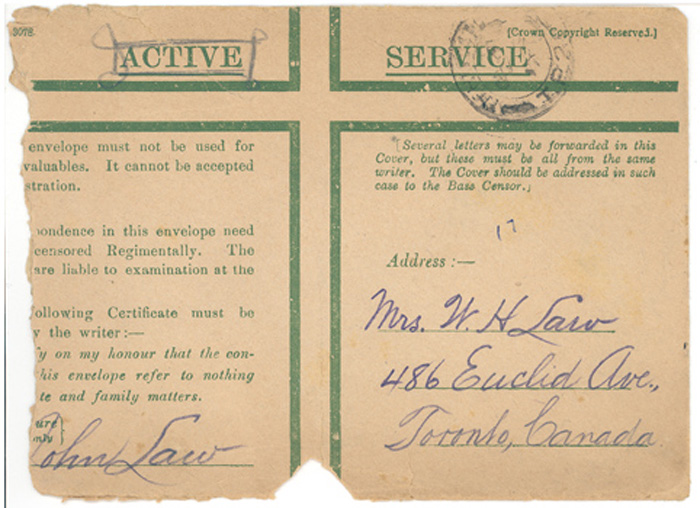 3078.
[Crown Copyright Reserved.]
ACTIVE SERVICE
envelope must not be used for
valuables. It cannot be accepted
stration.
pondence in this envelope need
censored Regimentally. The
are liable to examination at the
ollowing Certificate must be
y the writer:—
fy on my honour that the con-
his envelope refer to nothing
te and family matters.
ure
only }
John Law
[Several letters may be forwarded in this
Cover, but these must be all from the same
writer. The Cover should be addressed in such
case to the Base Censor.]
17
Address:—
Mrs. W. H Law
486 Euclid Ave.,
Toronto, Canada